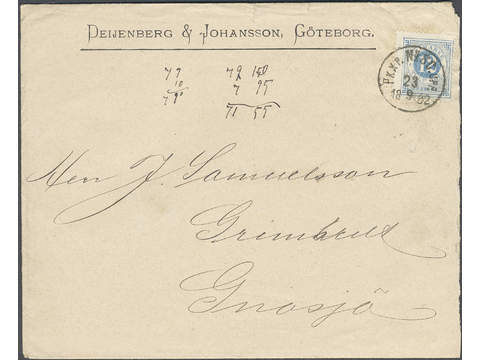 DEIJENBERG & JOHANSSON, GÖTEBORG.
79 150
7 95
71 55
PKXP. Nr
23
18 9 82
Herr J. Samuelsson
Grimbred
Gnosjö